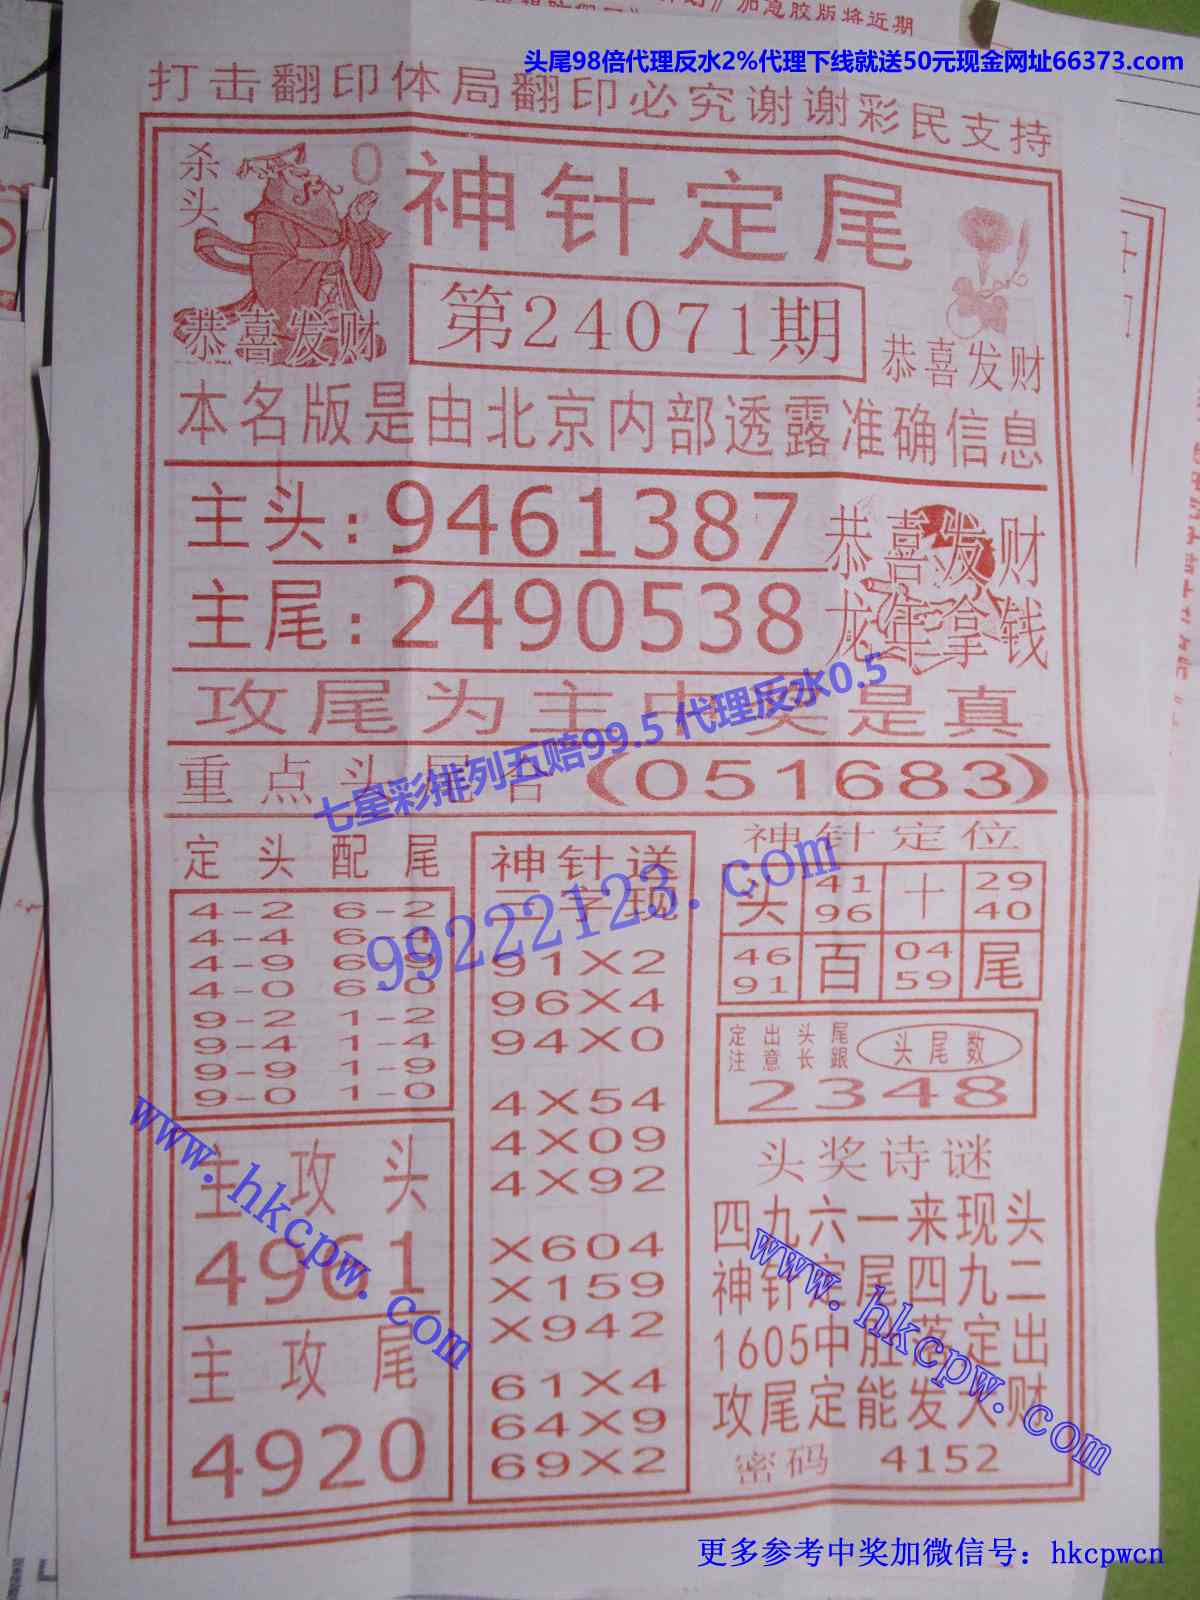 加急胶版将近期
头尾98倍代理反水2%代理下线就送50元现金网址66373.com
打击翻印体局翻印必究谢谢彩民支持
杀头
0
神针定尾
第24071期
恭喜发财
恭喜发财
本名版是由北京内部透露准确信息
主头:9461387
主尾:2490538
恭喜发财
龙年拿钱
攻尾为主中奖是真
七星彩排列五赔99.5 代理反水0.5
重点头尾合(051683)
定头配尾
4-2 6-2
4-4 6-4
4-9 6-9
4-0 6-0
9-2 1-2
9-4 1-4
9-9 1-9
9-0 1-0
99222123.com
主攻头
4961
主攻尾
4920
神针送
三字现
91X2
96X4
94X0
4X54
4X09
4X92
X604
X159
X942
61X4
64X9
69X2
神针定位
头 41 十 29
96 40
46 百 04 尾
91 59
定出头尾
注意长銀
头尾数
2348
头奖诗谜
四九六一来现头
神针定尾四九二
1605中肚落定出
攻尾定能发大财
密码 4152
www.hkcpw.com
www.hkcpw.com
更多参考中奖加微信号：hkcpwcn